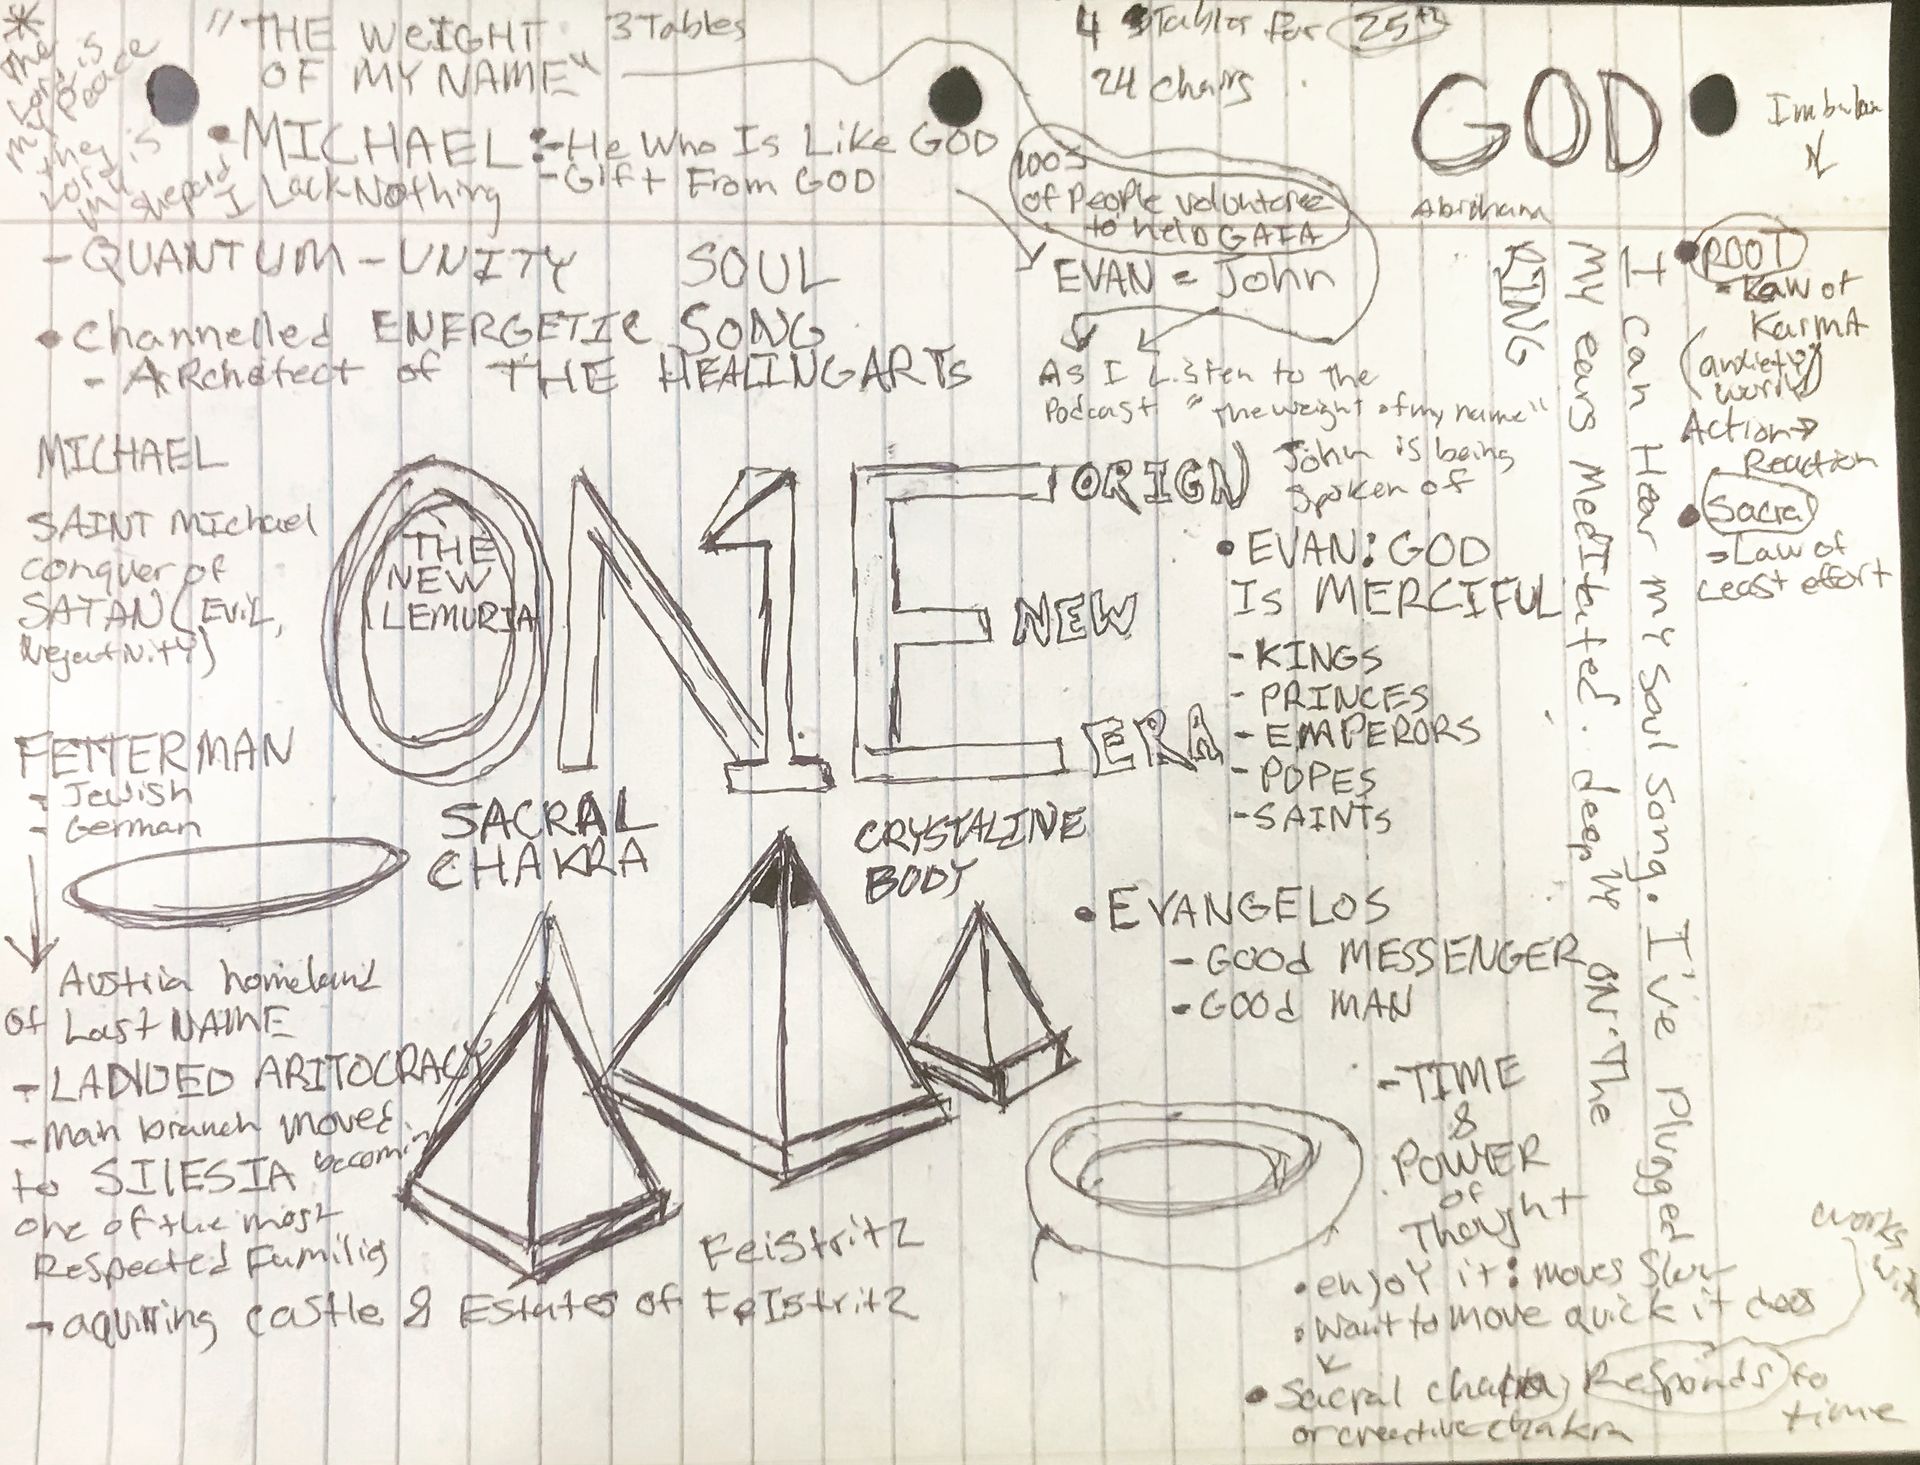 "THE WEIGHT
OF MY NAME"
3 Tables
4 Tables for 25th
24 chairs
GOD
Abraham
The
Lord is
my Peace
they
Lord is
my shepard
I Lack Nothing
MICHAEL:-He Who Is Like GOD
-Gift From GOD
100s
of People volunteree
to help GAIA
EVAN = John
- QUANTUM - UNITY SOUL
• Channelled ENERGETIC SONG
- ARchetect of THE HEALING ARTs
As I Listen to the
Podcast "the weight of my name"
John is being
spoken of
MICHAEL
SAINT Michael
conquer of
SATAN (EVIL,
Negativity)
THE
NEW
LEMURIA
ONE
ORIGN
NEW
ERA
• EVAN: GOD
Is MERCIFUL
- KINGS
- PRINCES
- EMPERORS
- POPES
- SAINTS
FETTERMAN
- Jewish
- German
SACRAL
CHAKRA
CRYSTALINE
BODY
• EVANGELOS
- GOOd MESSENGER
- GOOd MAN
Austria homeland
of Last NAME
- LADNDED ARITOCRACY
- Main branch moved
to SILESIA becomin
one of the most
Respected Familis
- aquiring castle & Estates of FeIstritz
Feistritz
- TIME
&
POWER
of
Thought
• enjoy it: moves slow
• Want to move quick it does
• Sacral chakra Responds to
time
or creative chakra
works
with
RING
I can Hear my soul song. I've Plugged
my ears MedItated. deeply on The
• ROOT
- Law of
KarmA
(anxiety
worry)
Action→
Reaction
• Sacral
- Law of
Least effort